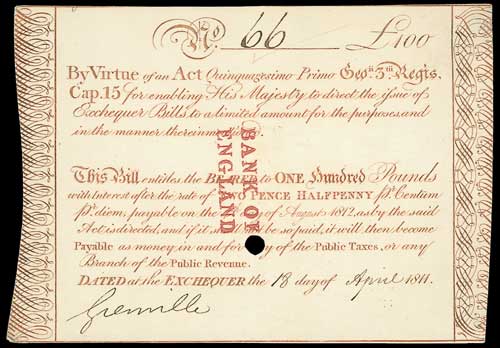 No. 66 £100
By Virtue of an Act Quinquagesimo Primo Geo:ii 3.tii Regis.
Cap. 15 for enabling His Majesty to direct the issue of
Exchequer Bills to a limited amount for the purposes and
in the manner therein
BANK OF
ENGLAND
This Bill entitles the BEARER to ONE Hundred Pounds
with Interest after the rate of TWO PENCE HALFPENNY pr. Centum
pr. diem, payable on the of August 1812, as by the said
Act is directed, and if it be so paid, it will then become
Payable as money, in and for of the Public Taxes, or any
Branch of the Public Revenue.
DATED at the EXCHEQUER the 18 day of April 1811.
Grenville